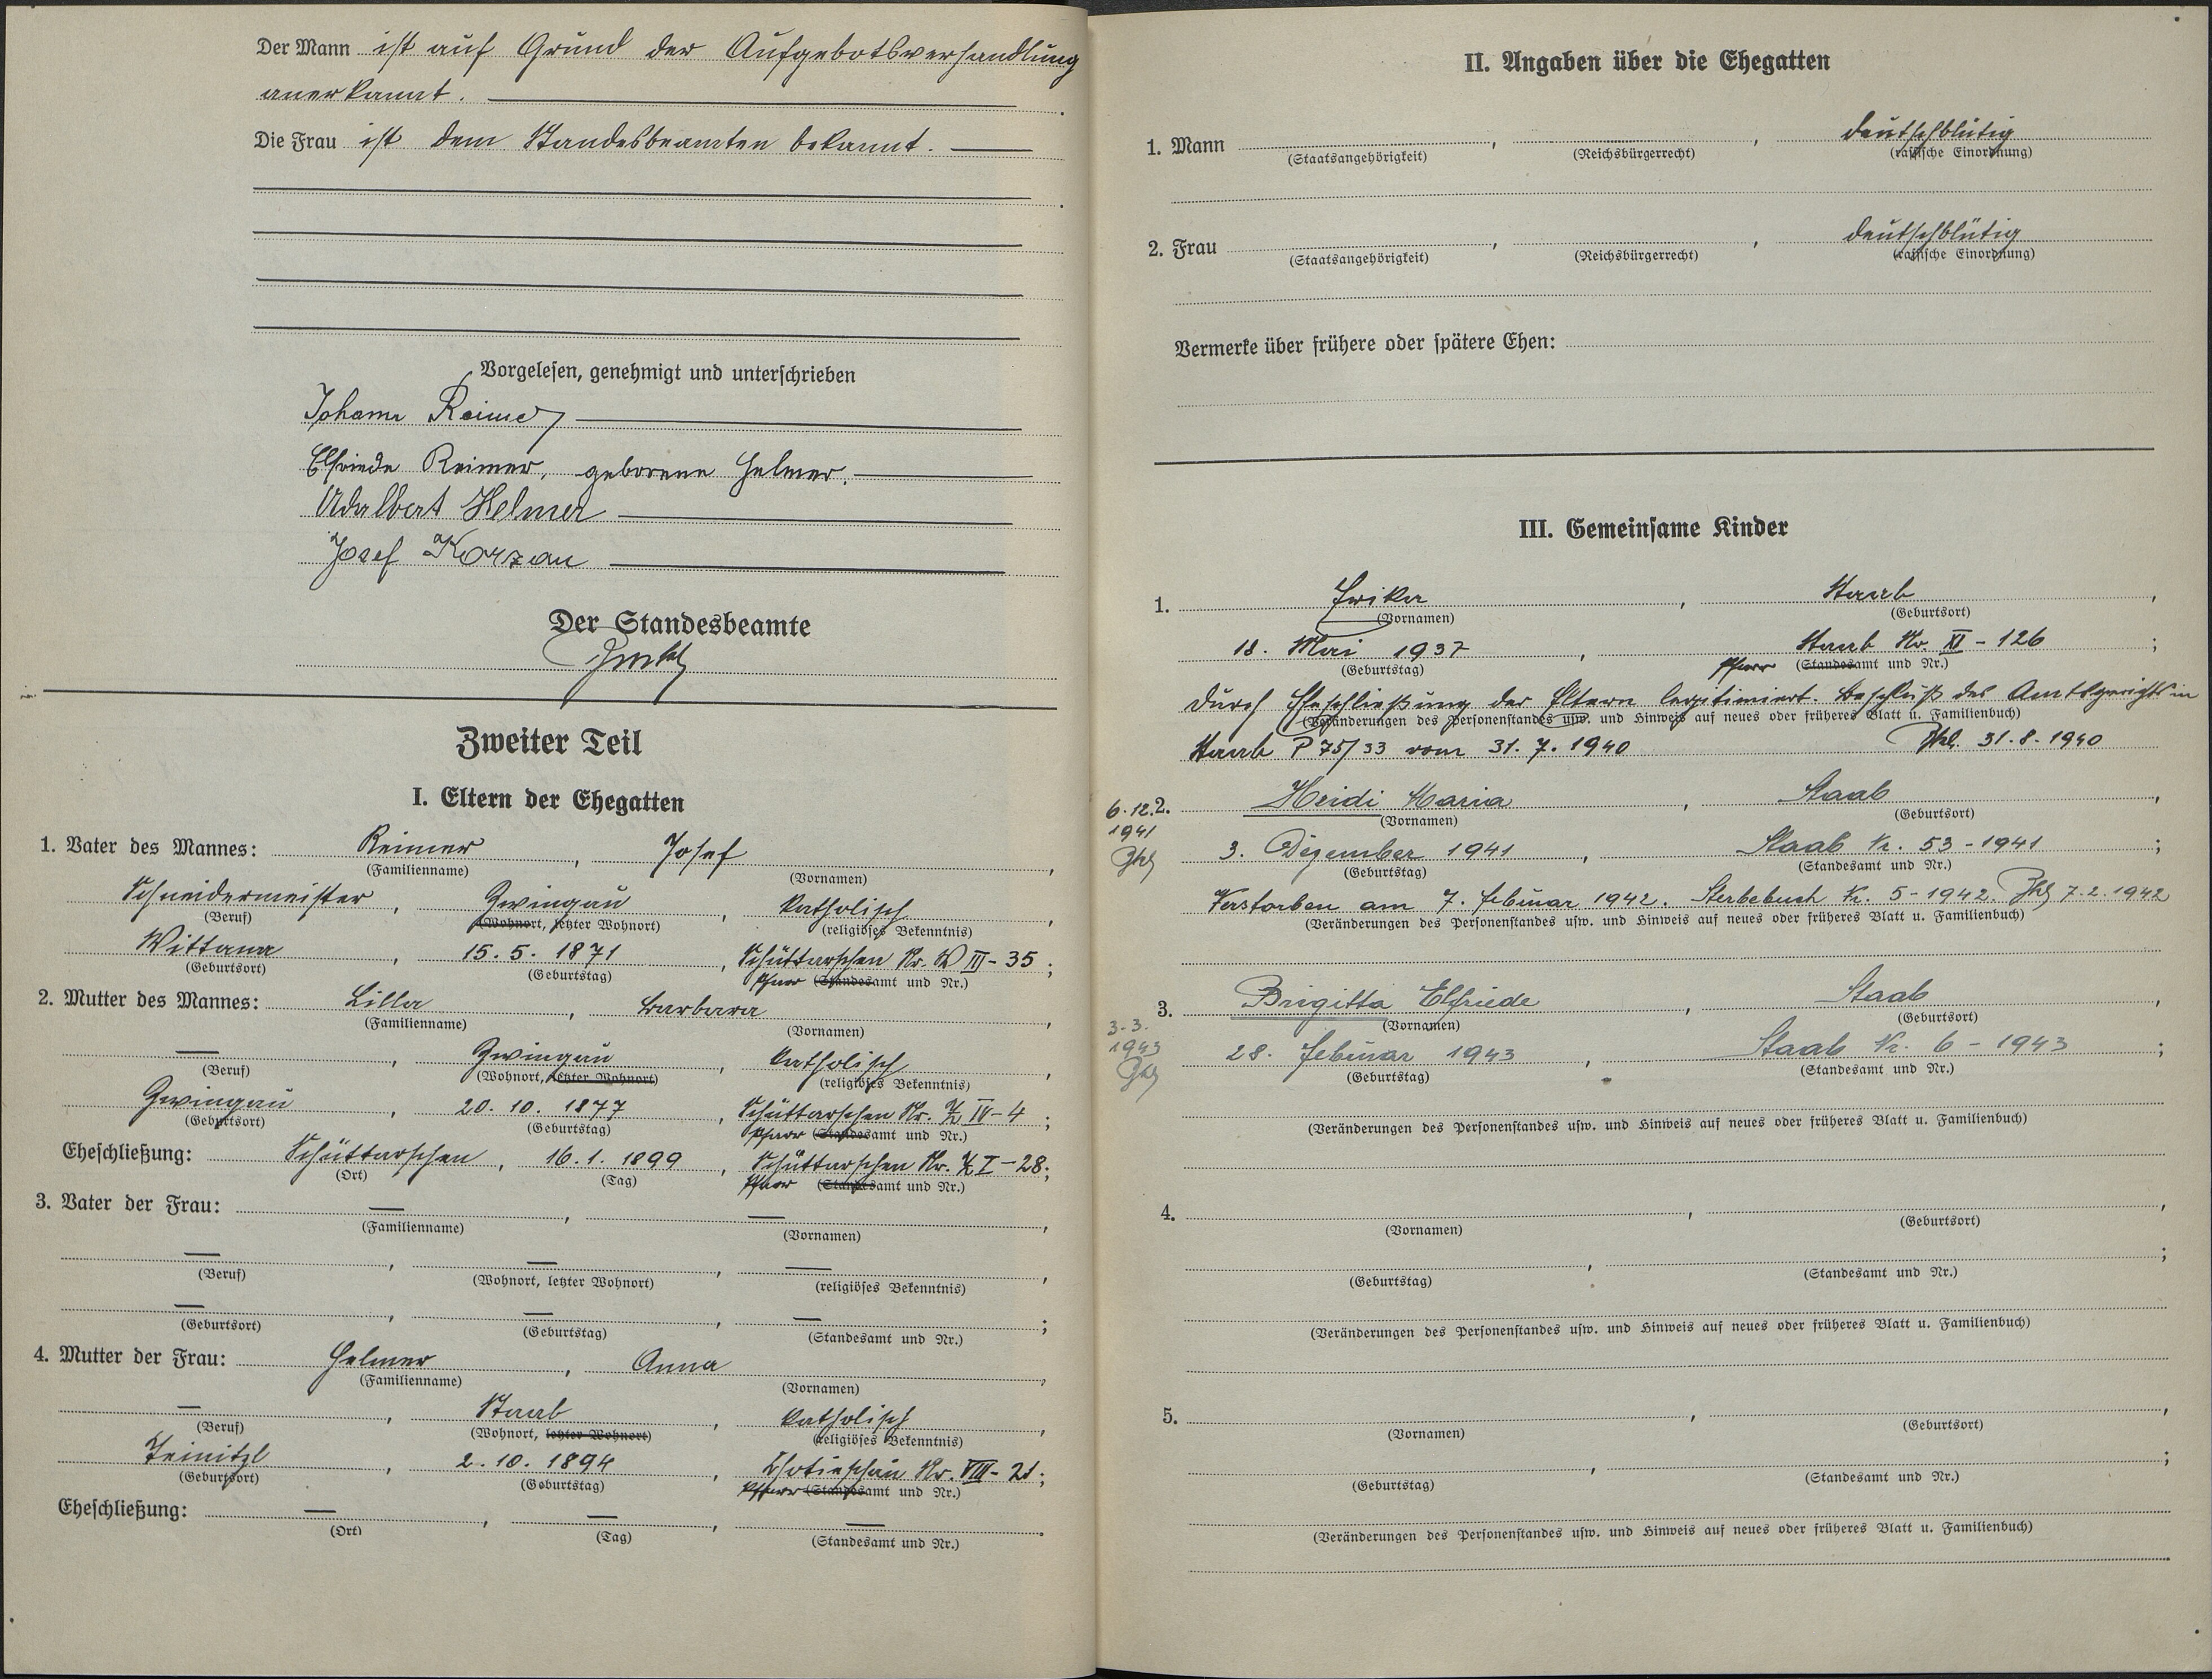 Der Mann ist auf Grund der Aufgebotsverhandlung
anerkannt.
Die Frau ist dem Standesbeamten bekannt.
Vorgelesen, genehmigt und unterschrieben
Johann Reimer
Elfriede Reimer, geborene Helmer.
Adalbert Helmer
Josef Korzan
Der Standesbeamte
Zweiter Teil
I. Eltern der Ehegatten
1. Vater des Mannes: Reimer, Josef,
(Familienname) (Vornamen)
Schneidermeister, Zwingau, katholisch,
(Beruf) (Wohnort, letzter Wohnort) (religiöses Bekenntnis)
Wittana, 15. 5. 1871, Schüttarschen Nr. W III - 35;
(Geburtsort) (Geburtstag) Pfarr (Standesamt und Nr.)
2. Mutter des Mannes: Lilla, Barbara,
(Familienname) (Vornamen)
—, Zwingau, katholisch,
(Beruf) (Wohnort, letzter Wohnort) (religiöses Bekenntnis)
Zwingau, 20. 10. 1877, Schüttarschen Nr. Z IV - 4;
(Geburtsort) (Geburtstag) Pfarr (Standesamt und Nr.)
Eheschließung: Schüttarschen, 16. 1. 1899, Schüttarschen Nr. Z I - 28;
(Ort) (Tag) Pfarr (Standesamt und Nr.)
3. Vater der Frau: —, —,
(Familienname) (Vornamen)
—, —, —,
(Beruf) (Wohnort, letzter Wohnort) (religiöses Bekenntnis)
—, —, —;
(Geburtsort) (Geburtstag) (Standesamt und Nr.)
4. Mutter der Frau: Helmer, Anna,
(Familienname) (Vornamen)
—, Staab, katholisch,
(Beruf) (Wohnort, letzter Wohnort) (religiöses Bekenntnis)
Teinitzl, 2. 10. 1894, Chotieschau Nr. VIII - 21;
(Geburtsort) (Geburtstag) Pfarr (Standesamt und Nr.)
Eheschließung: —, —, —.
(Ort) (Tag) (Standesamt und Nr.)
II. Angaben über die Ehegatten
1. Mann , , deutschblütig
(Staatsangehörigkeit) (Reichsbürgerrecht) (rassische Einordnung)
2. Frau , , deutschblütig
(Staatsangehörigkeit) (Reichsbürgerrecht) (rassische Einordnung)
Vermerke über frühere oder spätere Ehen:
III. Gemeinsame Kinder
1. Erika, Staab,
(Vornamen) (Geburtsort)
18. Mai 1937, Staab Nr. XI - 126;
(Geburtstag) Pfarr (Standesamt und Nr.)
Durch Eheschließung der Eltern legitimiert. Beschluß des Amtsgerichts in
(Veränderungen des Personenstandes usw. und Hinweis auf neues oder früheres Blatt u. Familienbuch)
Staab P 75/33 vom 31. 7. 1940 31. 8. 1940
6. 12. 2. Heidi Maria, Staab,
1941 (Vornamen) (Geburtsort)
3. Dezember 1941, Staab Nr. 53 - 1941;
(Geburtstag) (Standesamt und Nr.)
Verstorben am 7. Februar 1942. Sterbebuch Nr. 5 - 1942. 7. 2. 1942
(Veränderungen des Personenstandes usw. und Hinweis auf neues oder früheres Blatt u. Familienbuch)
3. Brigitta Elfriede, Staab,
3. 3. (Vornamen) (Geburtsort)
1943 28. Februar 1943, Staab Nr. 6 - 1943;
(Geburtstag) (Standesamt und Nr.)
(Veränderungen des Personenstandes usw. und Hinweis auf neues oder früheres Blatt u. Familienbuch)
4. , ,
(Vornamen) (Geburtsort)
, ;
(Geburtstag) (Standesamt und Nr.)
(Veränderungen des Personenstandes usw. und Hinweis auf neues oder früheres Blatt u. Familienbuch)
5. , ,
(Vornamen) (Geburtsort)
, ;
(Geburtstag) (Standesamt und Nr.)
(Veränderungen des Personenstandes usw. und Hinweis auf neues oder früheres Blatt u. Familienbuch)